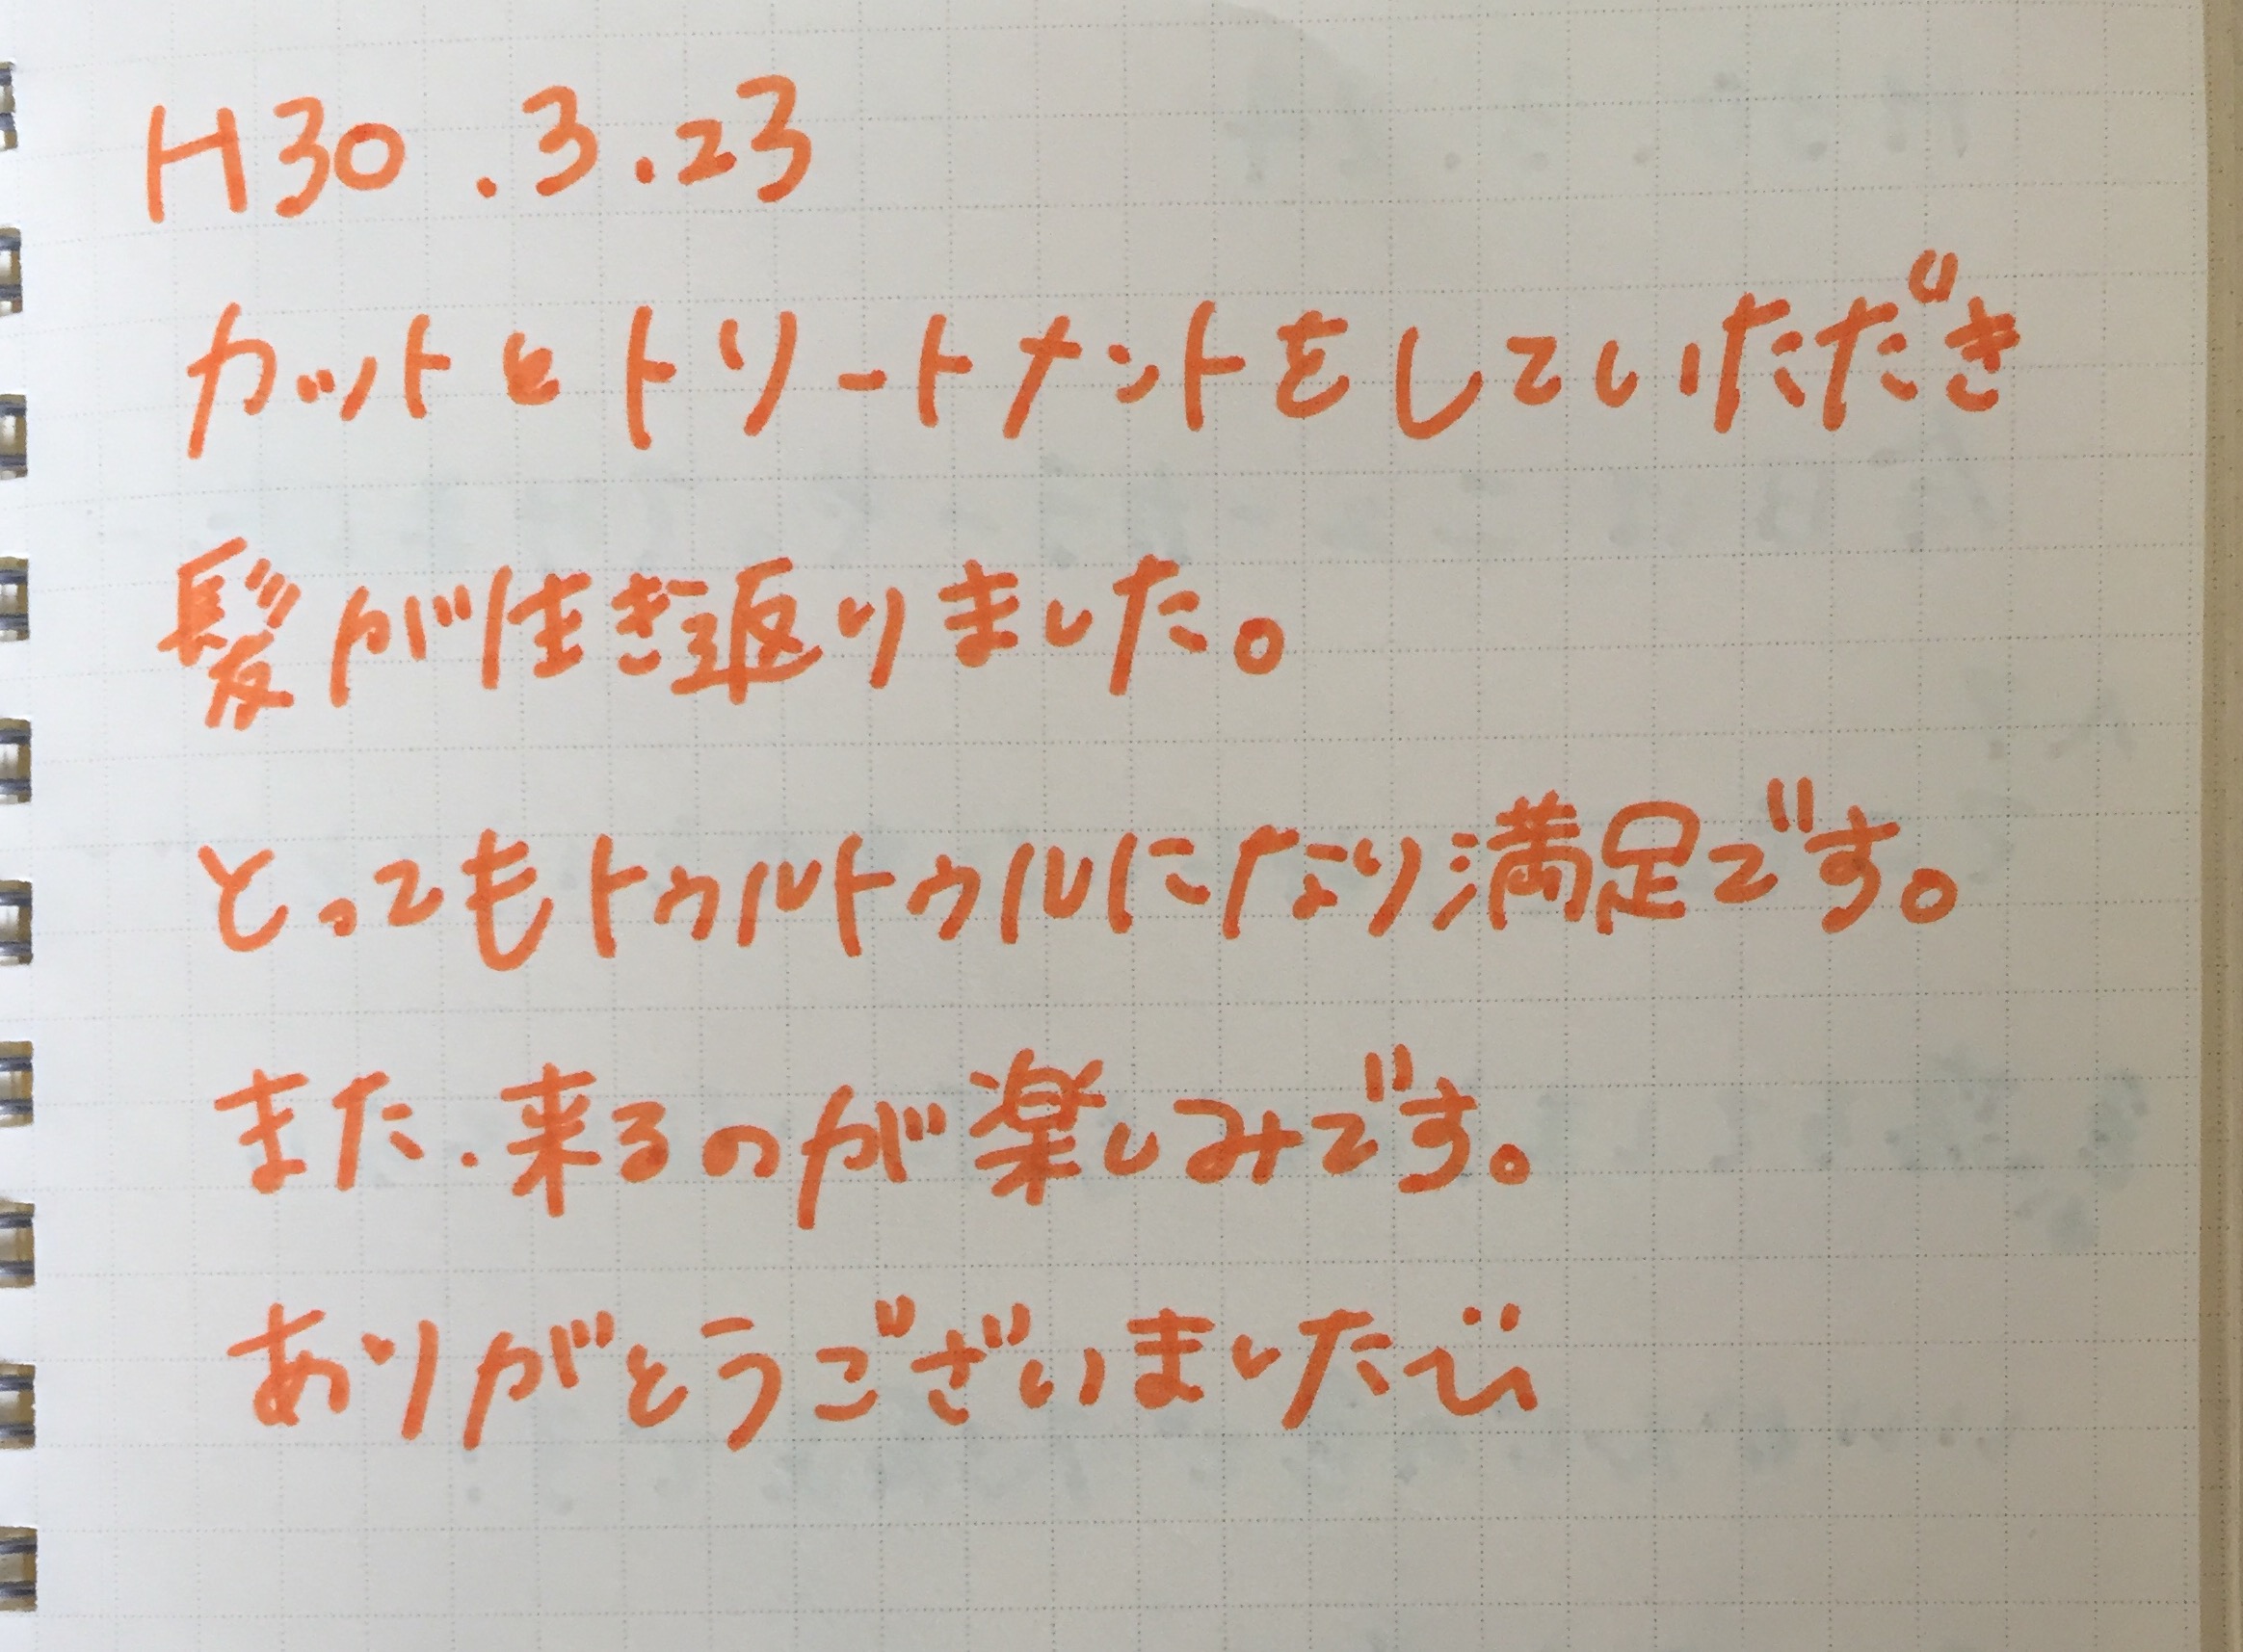 H30.3.23
カットとトリートメントをしていただき
髪が生き返りました。
とってもトゥルトゥルになり満足です。
また.来るのが楽しみです。
ありがとうございました